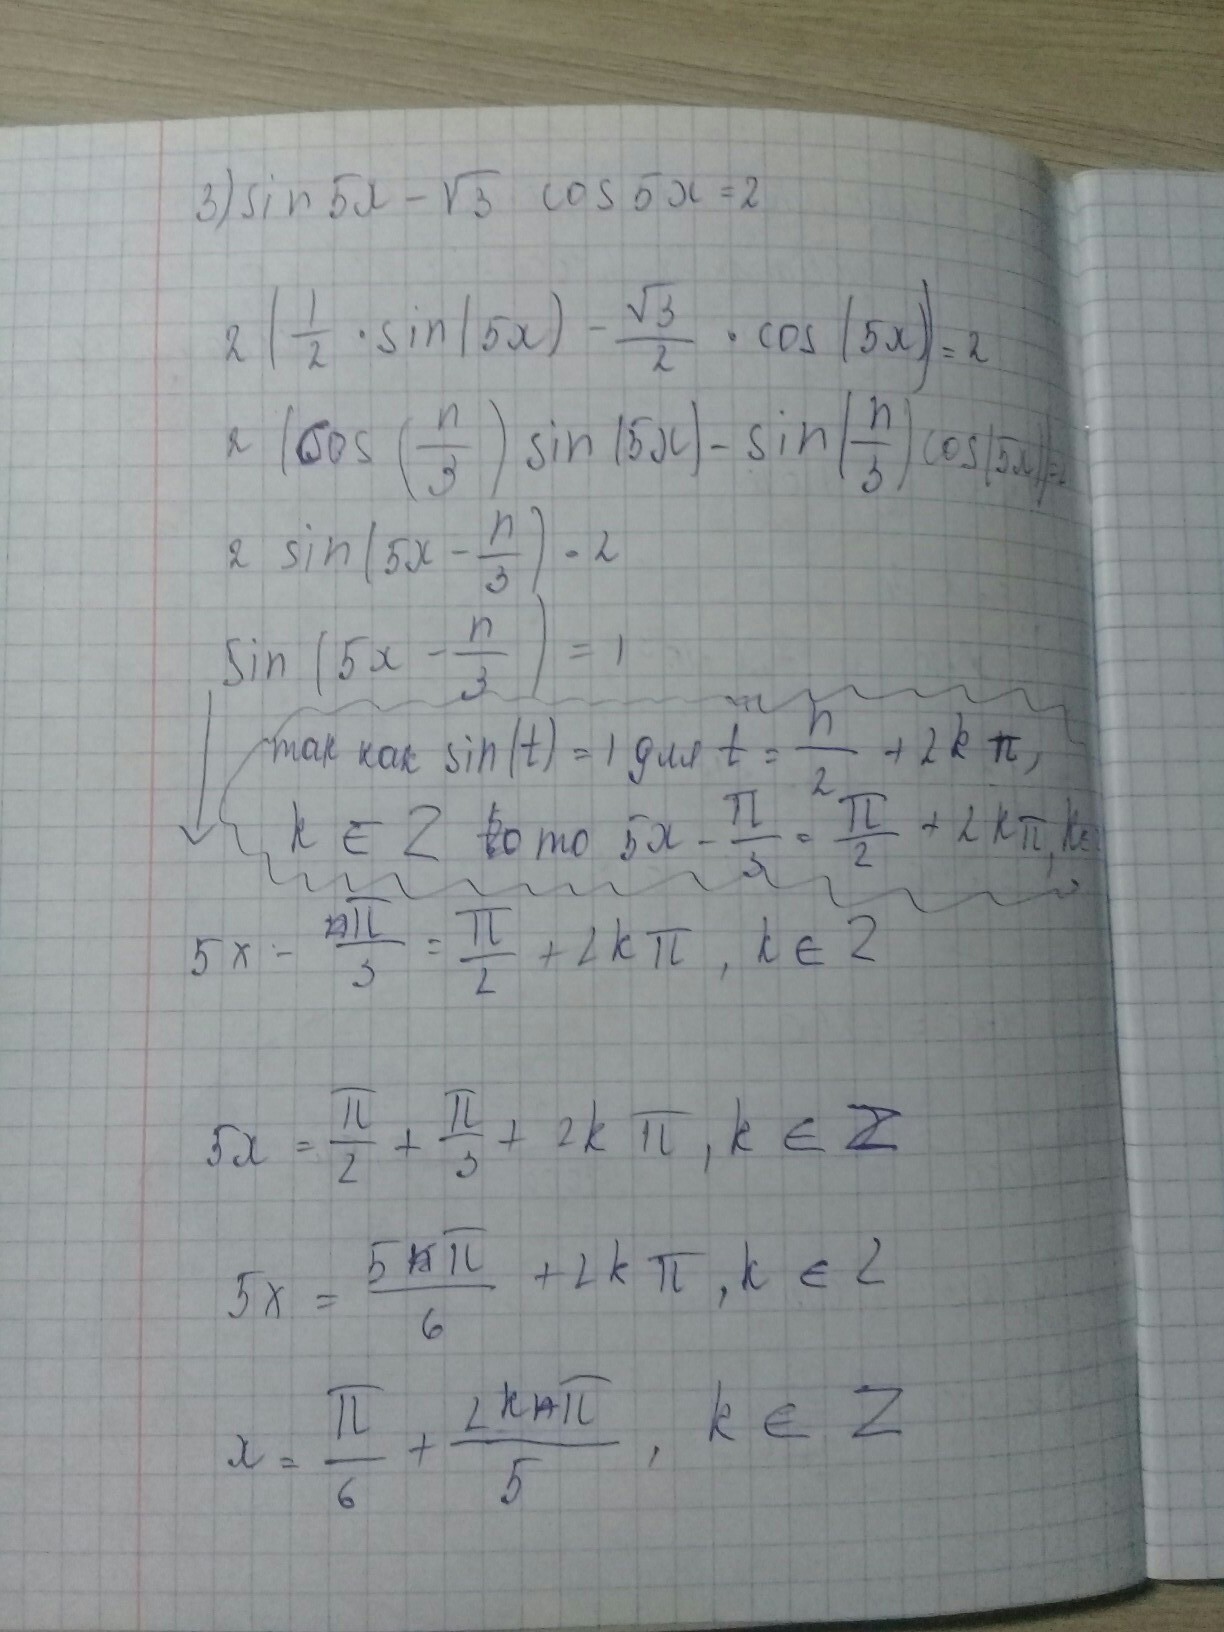 3) sin 5x − √3 cos 5x = 2
2 (1/2 · sin(5x) − √3/2 · cos(5x)) = 2
2 (cos(п/3) sin(5x) − sin(п/3) cos(5x)) = 2
2 sin(5x − п/3) = 2
sin(5x − п/3) = 1
так как sin(t) = 1 для t = п/2 + 2kπ,
k ∈ Z то 5x − π/3 = π/2 + 2kπ, k ∈
5x − π/3 = π/2 + 2kπ, k ∈ Z
5x = π/2 + π/3 + 2kπ, k ∈ Z
5x = 5π/6 + 2kπ, k ∈ Z
x = π/6 + 2kπ/5, k ∈ Z